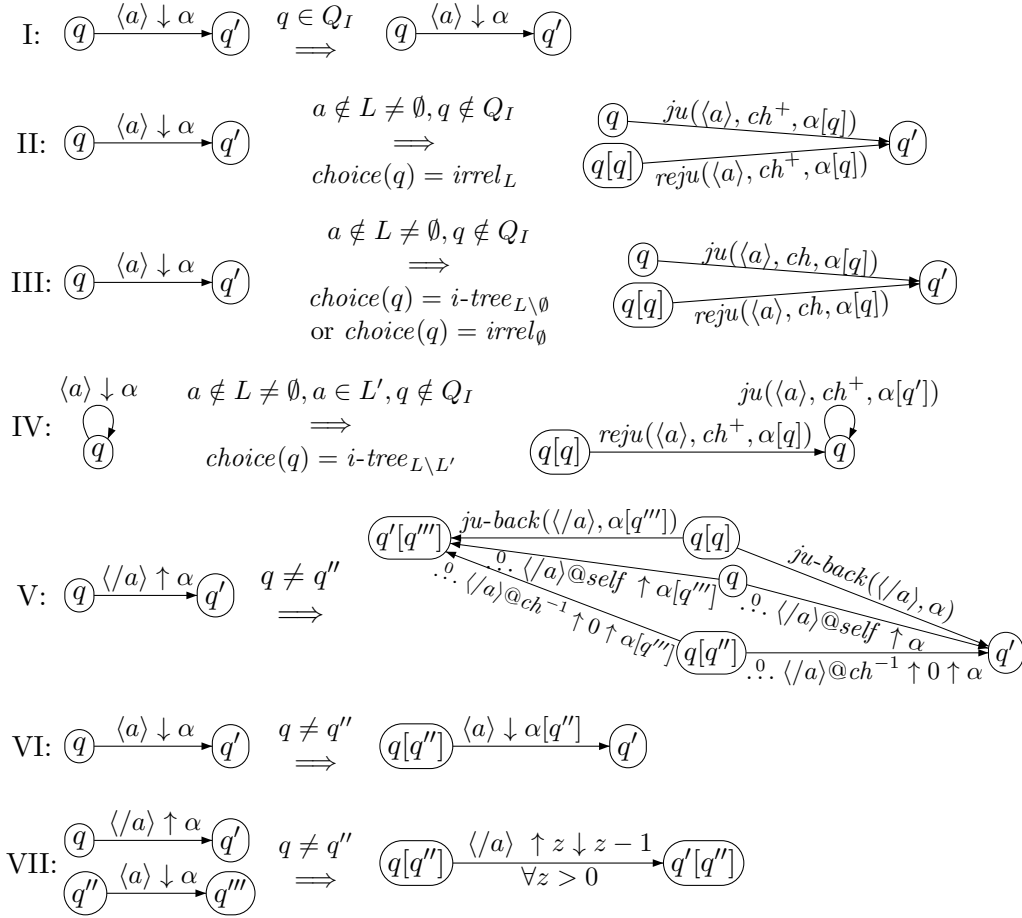 I: q ⟨a⟩ ↓ α q′ q ∈ Q_I ⟹ q ⟨a⟩ ↓ α q′
II: q ⟨a⟩ ↓ α q′ a ∉ L ≠ ∅, q ∉ Q_I ⟹ choice(q) = irrel_L q ju(⟨a⟩, ch⁺, α[q]) q[q] reju(⟨a⟩, ch⁺, α[q]) q′
III: q ⟨a⟩ ↓ α q′ a ∉ L ≠ ∅, q ∉ Q_I ⟹ choice(q) = i-tree_{L\∅} q ju(⟨a⟩, ch, α[q]) q[q] reju(⟨a⟩, ch, α[q]) q′
or choice(q) = irrel_∅
IV: ⟨a⟩ ↓ α q a ∉ L ≠ ∅, a ∈ L′, q ∉ Q_I ⟹ choice(q) = i-tree_{L\L′} q[q] reju(⟨a⟩, ch⁺, α[q]) q ju(⟨a⟩, ch⁺, α[q′])
V: q ⟨/a⟩ ↑ α q′ q ≠ q″ ⟹ q′[q‴] ju-back(⟨/a⟩, α[q‴]) q[q] ju-back(⟨/a⟩, α)
.⁰. ⟨/a⟩@self ↑ α[q‴] q .⁰. ⟨/a⟩@self ↑ α
.⁰. ⟨/a⟩@ch⁻¹ ↑ 0 ↑ α[q‴] q[q″] .⁰. ⟨/a⟩@ch⁻¹ ↑ 0 ↑ α q′
VI: q ⟨a⟩ ↓ α q′ q ≠ q″ ⟹ q[q″] ⟨a⟩ ↓ α[q″] q′
VII: q ⟨/a⟩ ↑ α q′ q ≠ q″ ⟹ q[q″] ⟨/a⟩ ↑ z ↓ z − 1 ∀z > 0 q′[q″]
q″ ⟨a⟩ ↓ α q‴